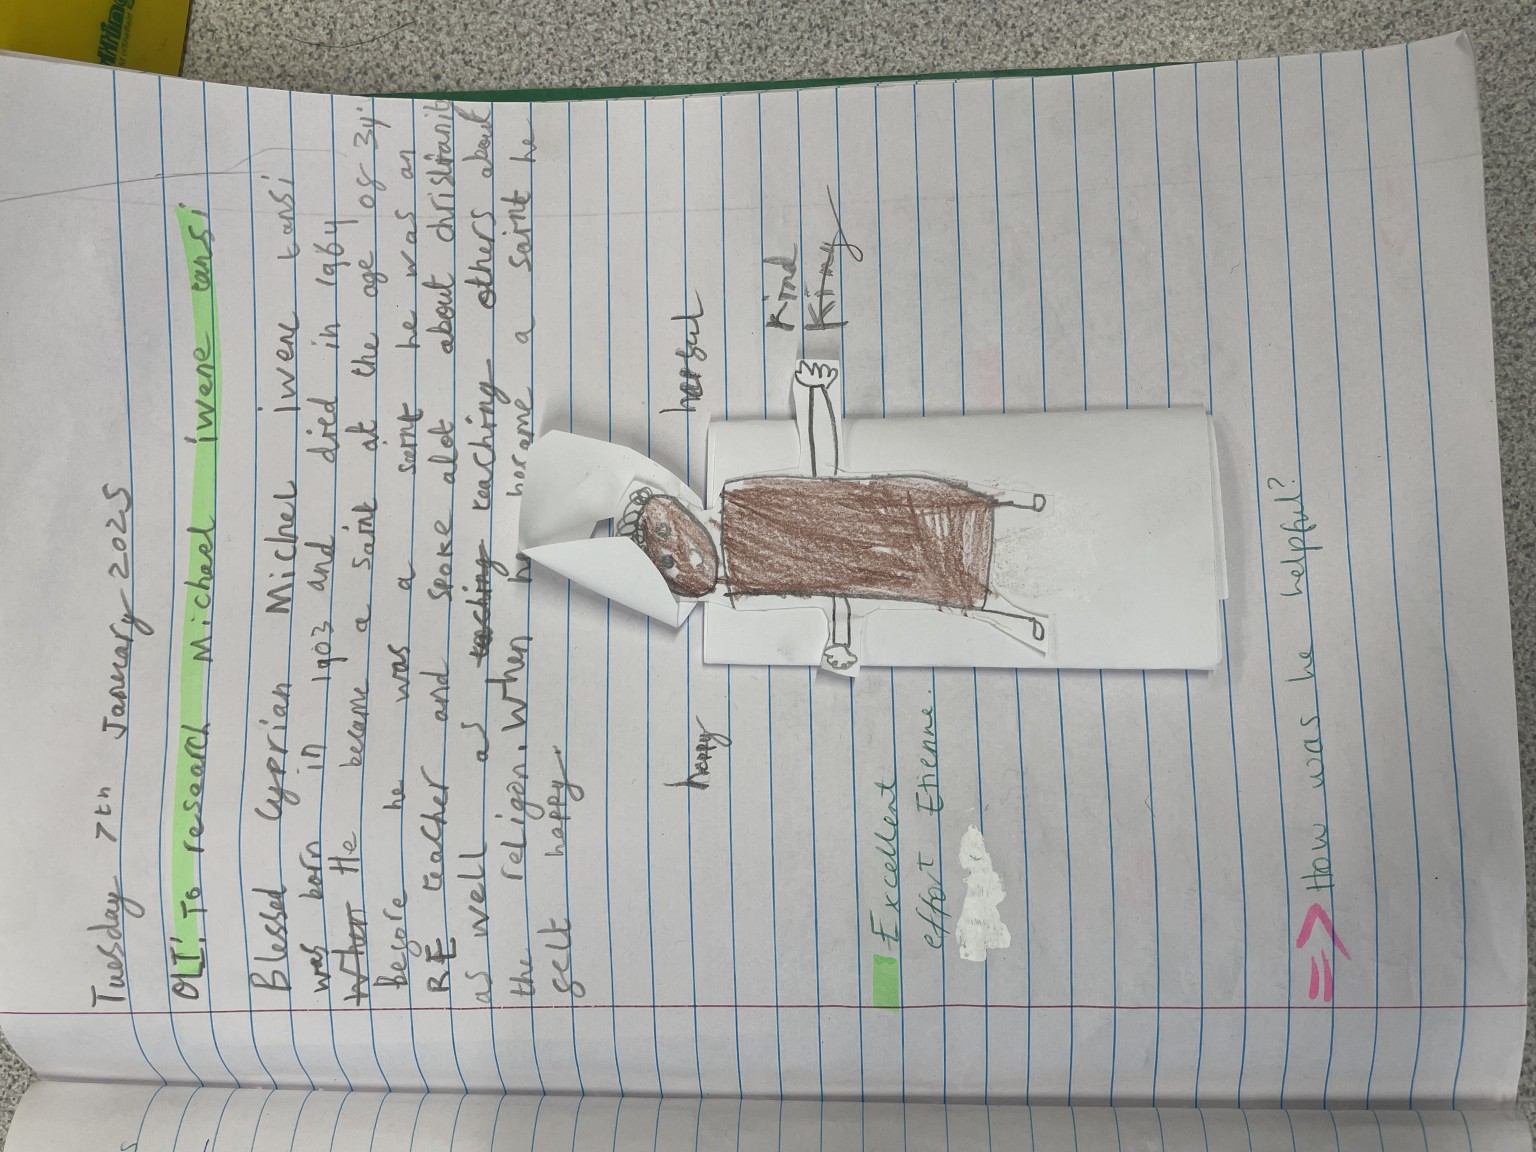 Tuesday 7th January 2025
OLI; To research Michael iwene tansi
Blessed Cyprian Michel Iwene tansi
was born in 1903 and died in 1964
When He became a saint at the age of 34.
before he was a saint he was an
RE teacher and spoke alot about christianit
as well as teaching teaching others about
the religon. When he became a saint he
felt happy.
happy
kind
Kiny
Excellent
effort Etienne.
=> How was he helpful?